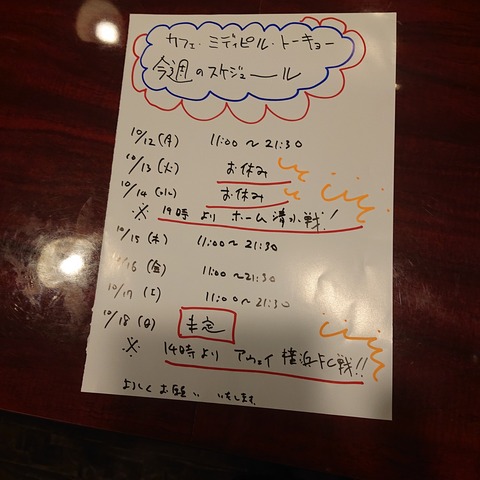 カフェ・ミディピル・トーキョー
今週のスケジュール
10/12(月) 11:00〜21:30
10/13(火) お休み
10/14(水) お休み
※ 19時より ホーム清水戦!
10/15(木) 11:00〜21:30
10/16(金) 11:00〜21:30
10/17(土) 11:00〜21:30
10/18(日) 未定
※ 14時より アウェイ 横浜FC戦!!
よろしくお願いいたします